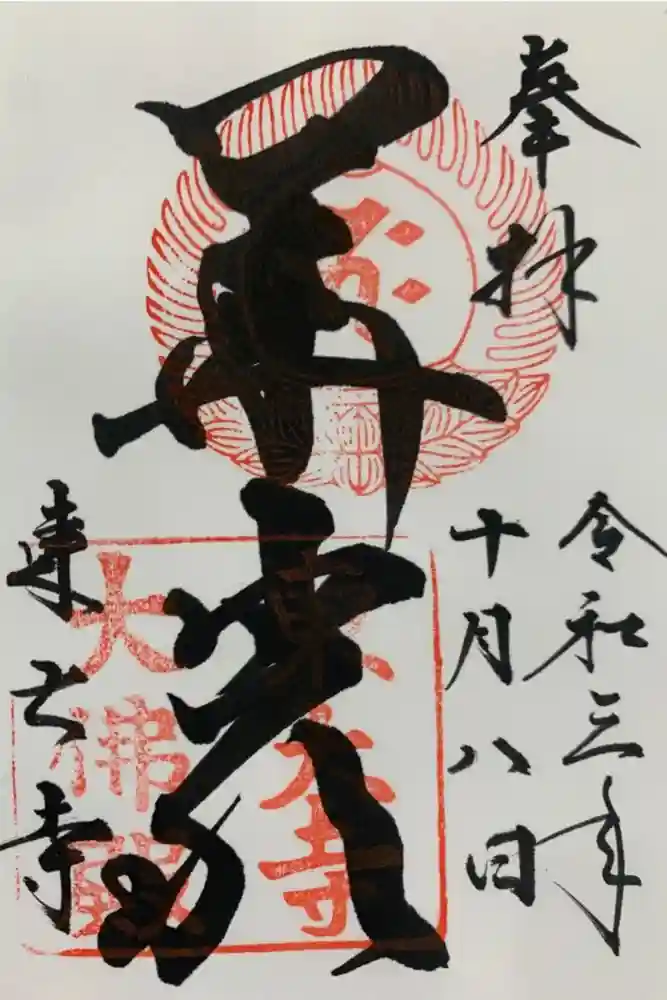 奉拝
令和三年
十月八日
華嚴
東大寺
東大寺
大佛殿